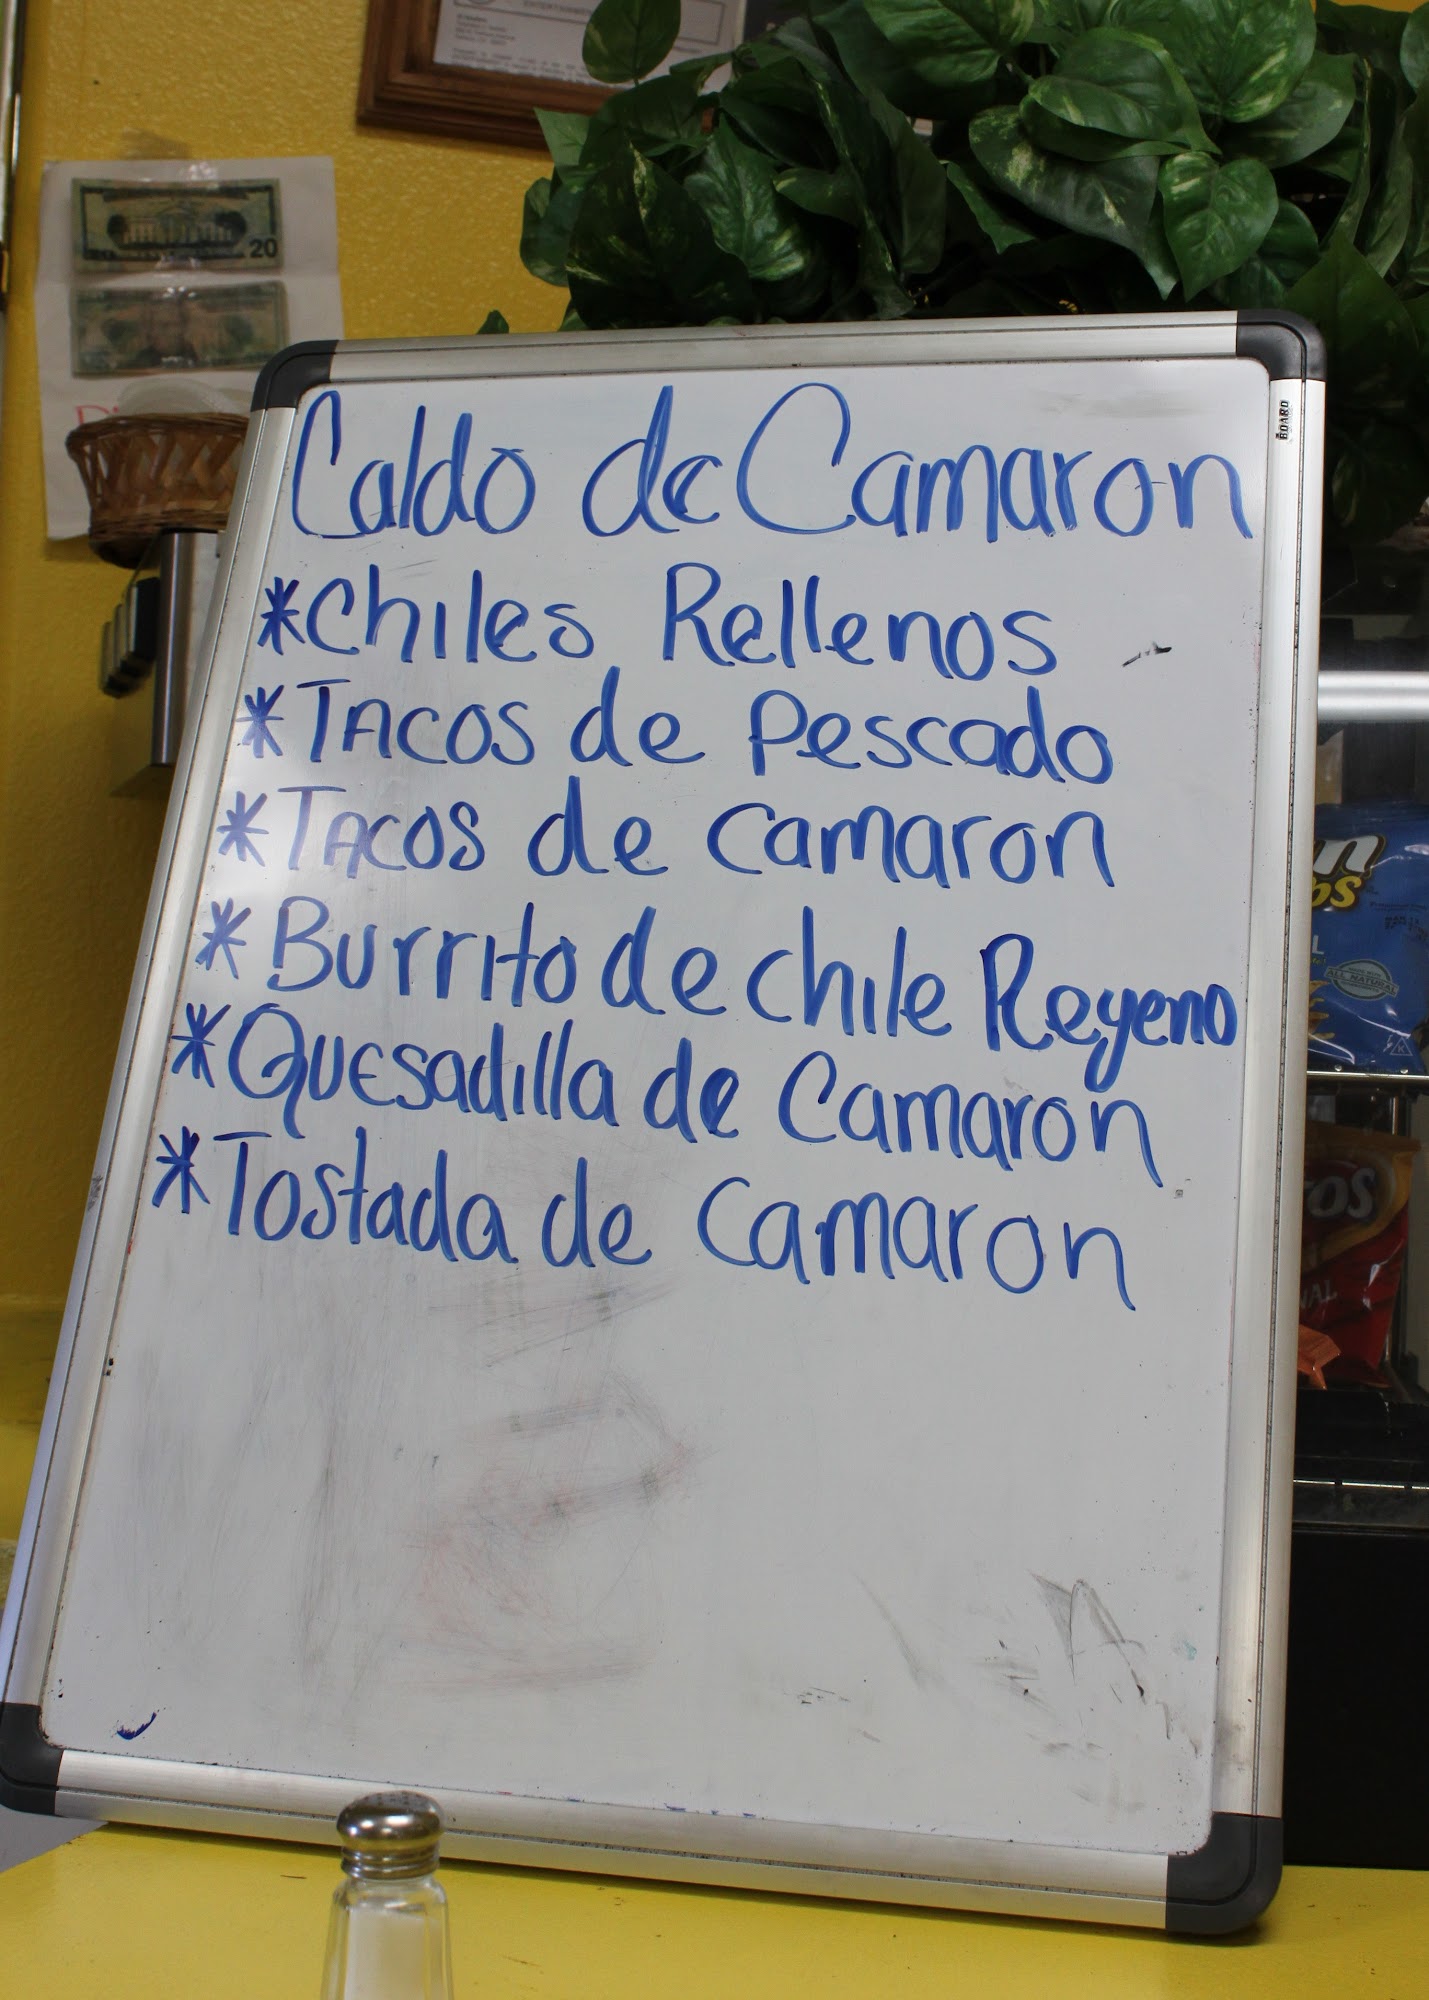 20
Caldo de Camaron
*Chiles Rellenos
*Tacos de Pescado
*Tacos de camaron
*Burrito de chile Reyeno
*Quesadilla de Camaron
*Tostada de Camaron
BOARD
ALL NATURAL